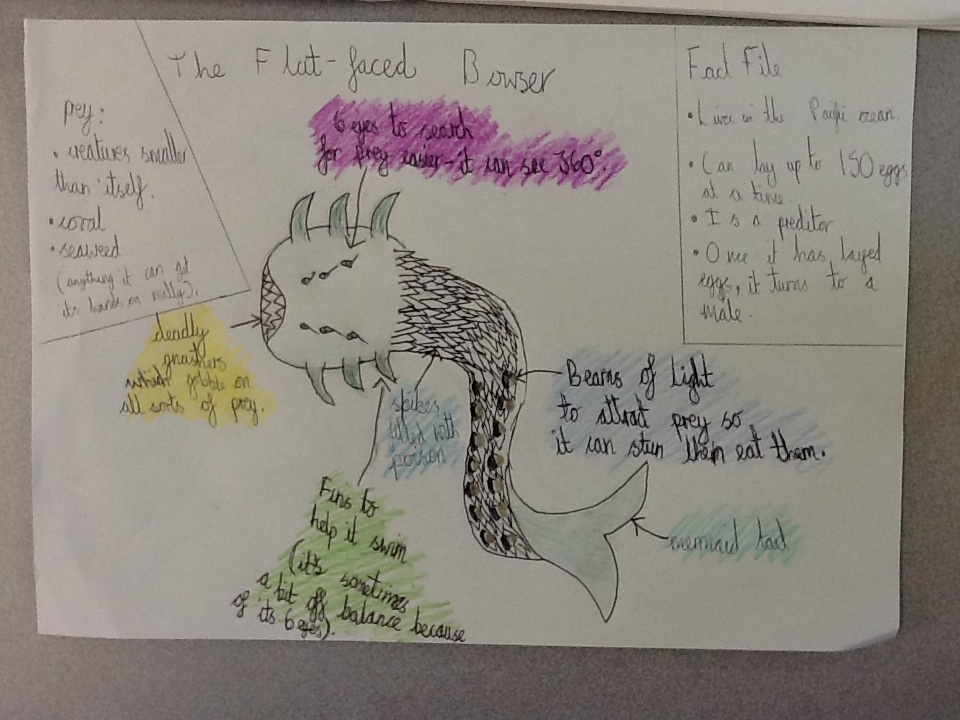 The Flat-faced Bowser
prey:
• creatures smaller
than itself.
• coral
• seaweed
(anything it can get
its hands on really).
6 eyes to search
for prey easier - it can see 360°.
Fact File
• Lives in the Pacific ocean.
• Can lay up to 150 eggs
at a time.
• Is a preditor
• Once it has layed
eggs, it turns to a
male.
deadly
gnashers
which gobble on
all sorts of prey.
spikes
filled with
poison
Beams of Light
to attrat prey so
it can stun them eat them.
Fins to
help it swim
(it's sometimes
a bit off balance because
of its 6 eyes).
mermaid tail